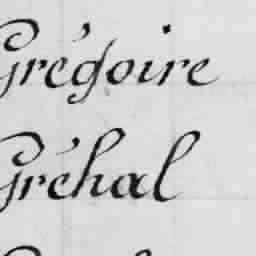 Grégoire
Gréhal